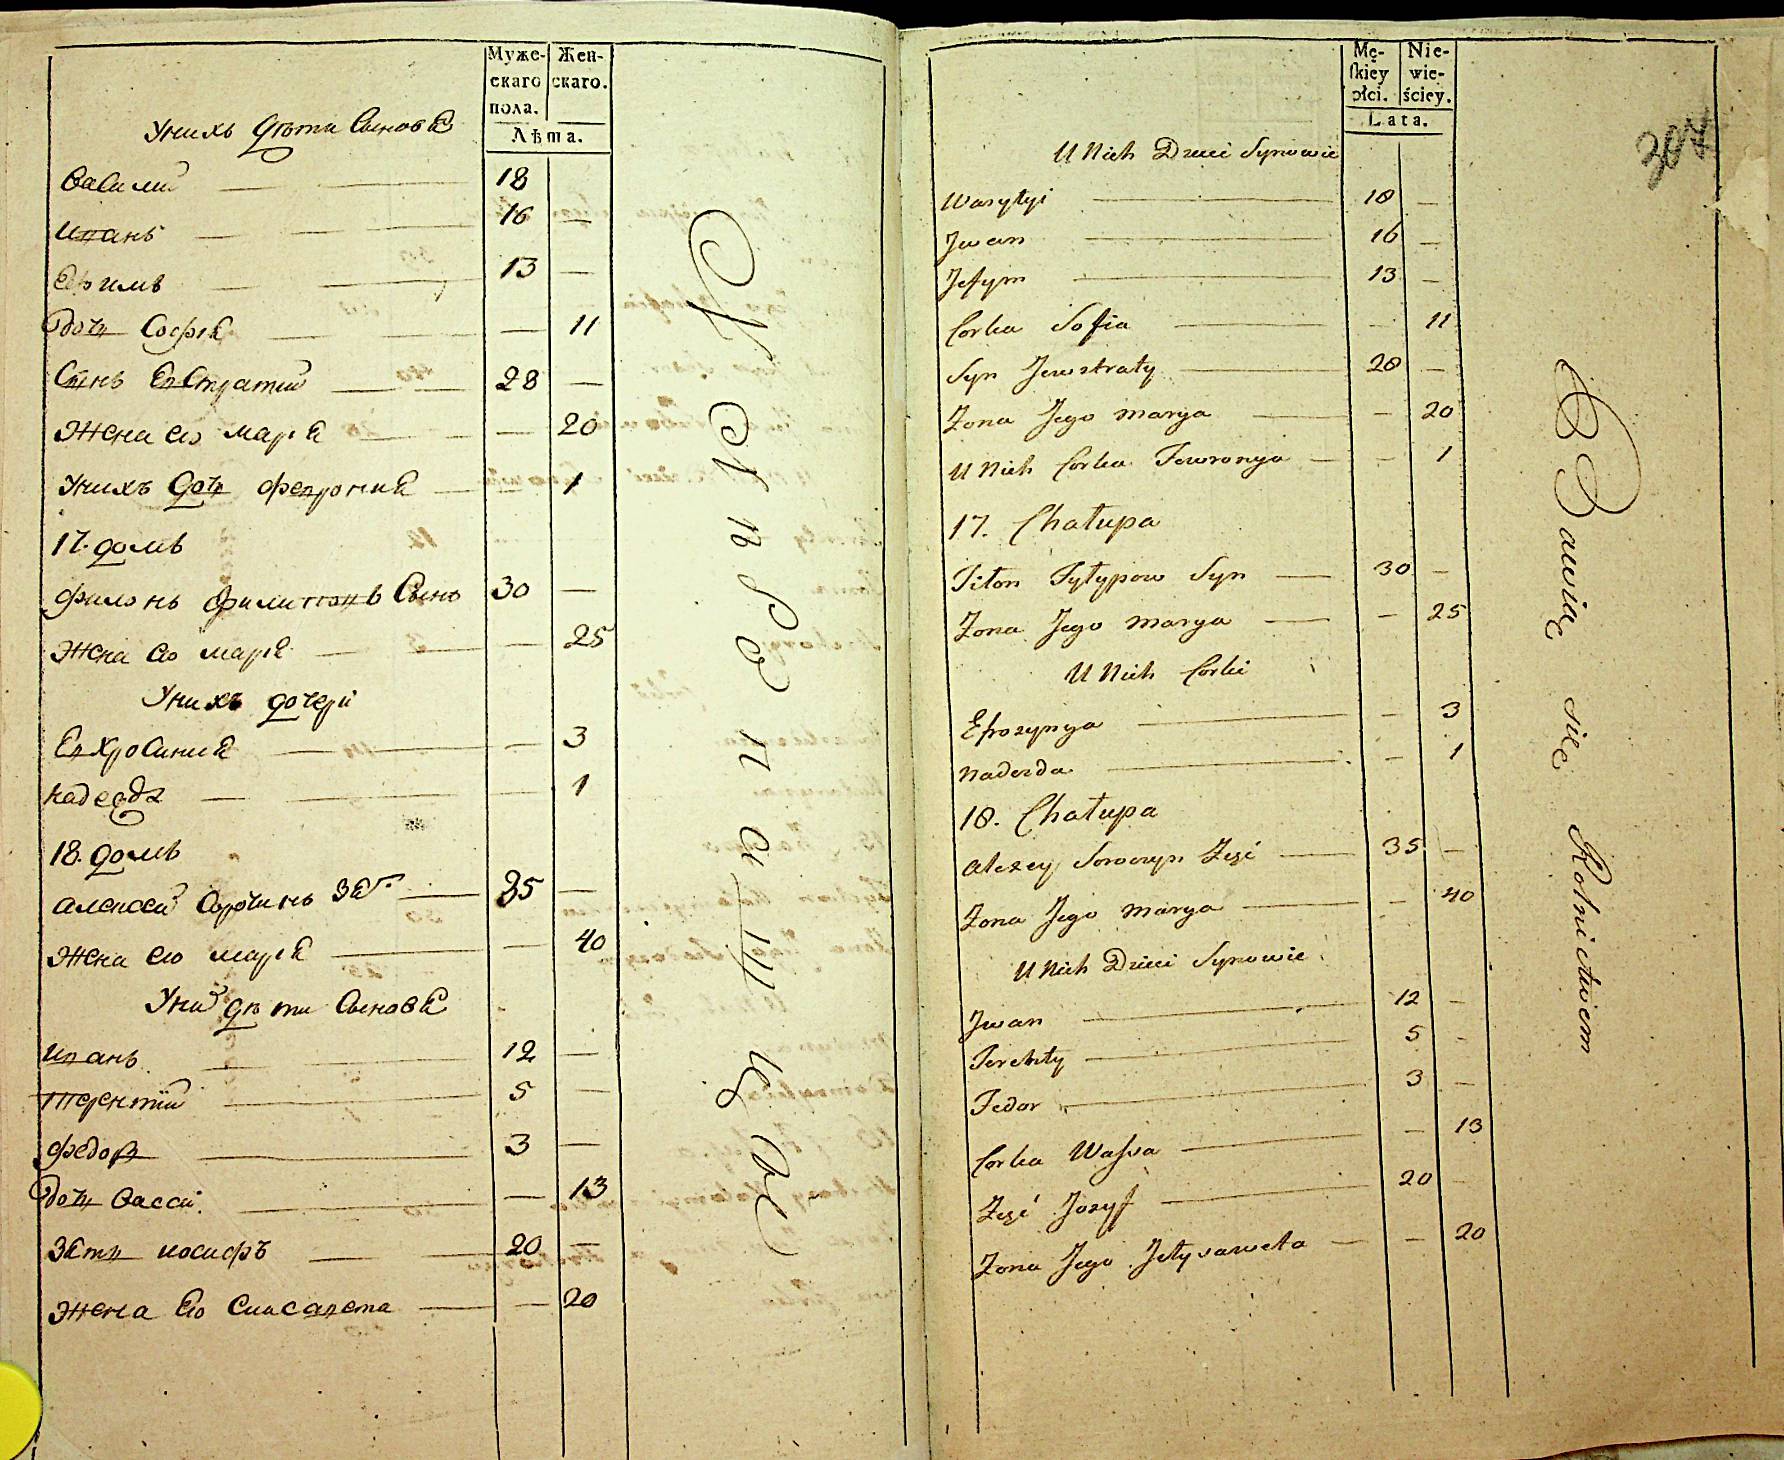 Муже-
скаго
пола.
Жен-
скаго.
Лѣта.
У нихъ дѣти Сыновя
Василий 18
Иванъ 16 —
Ефимъ 13 —
дочь Софья — 11
Сынъ Евстратий 28 —
Жена его Марья — 20
У нихъ дочь Феврония — 1
17. домъ
Филонъ Филиповъ Сынъ 30 —
Жена его Марья — 25
У нихъ дочери
Евхросиния — 3
Надежда — 1
18. домъ
Алексей Сорочинъ Зят. 35 —
Жена его Марья — 40
У них дѣти Сыновя
Иванъ 12 —
Терентий 5 —
Федор 3 —
дочь Васса — 13
Зять Иосифъ 20 —
Жена Его Елисавета — 20
Mę-
skiey
płci.
Nie-
wie-
ściey.
Lata.
307
U Nich Dzieci Synowie
Wasylyi 18 —
Jwan 16 —
Jefym 13 —
Corka Sofia — 11
Syn Jewstraty 28 —
Zona Jego Marya — 20
U Nich Corka Fewronya — 1
17. Chałupa
Fiłon Fyłypow Syn 30 —
Zona Jego Marya — 25
U Nich Corki
Efrozynya — 3
Nadezda — 1
18. Chałupa
Alexey Soroczyn Zięć 35 —
Zona Jego Marya — 40
U Nich Dzieci Synowie
Jwan 12 —
5 —
Fedor 3 —
Corka Wassa — 13
Zięć Jozyf 20 —
Zona Jego Jełysaweta — 20
Bawią się Rolnictwem